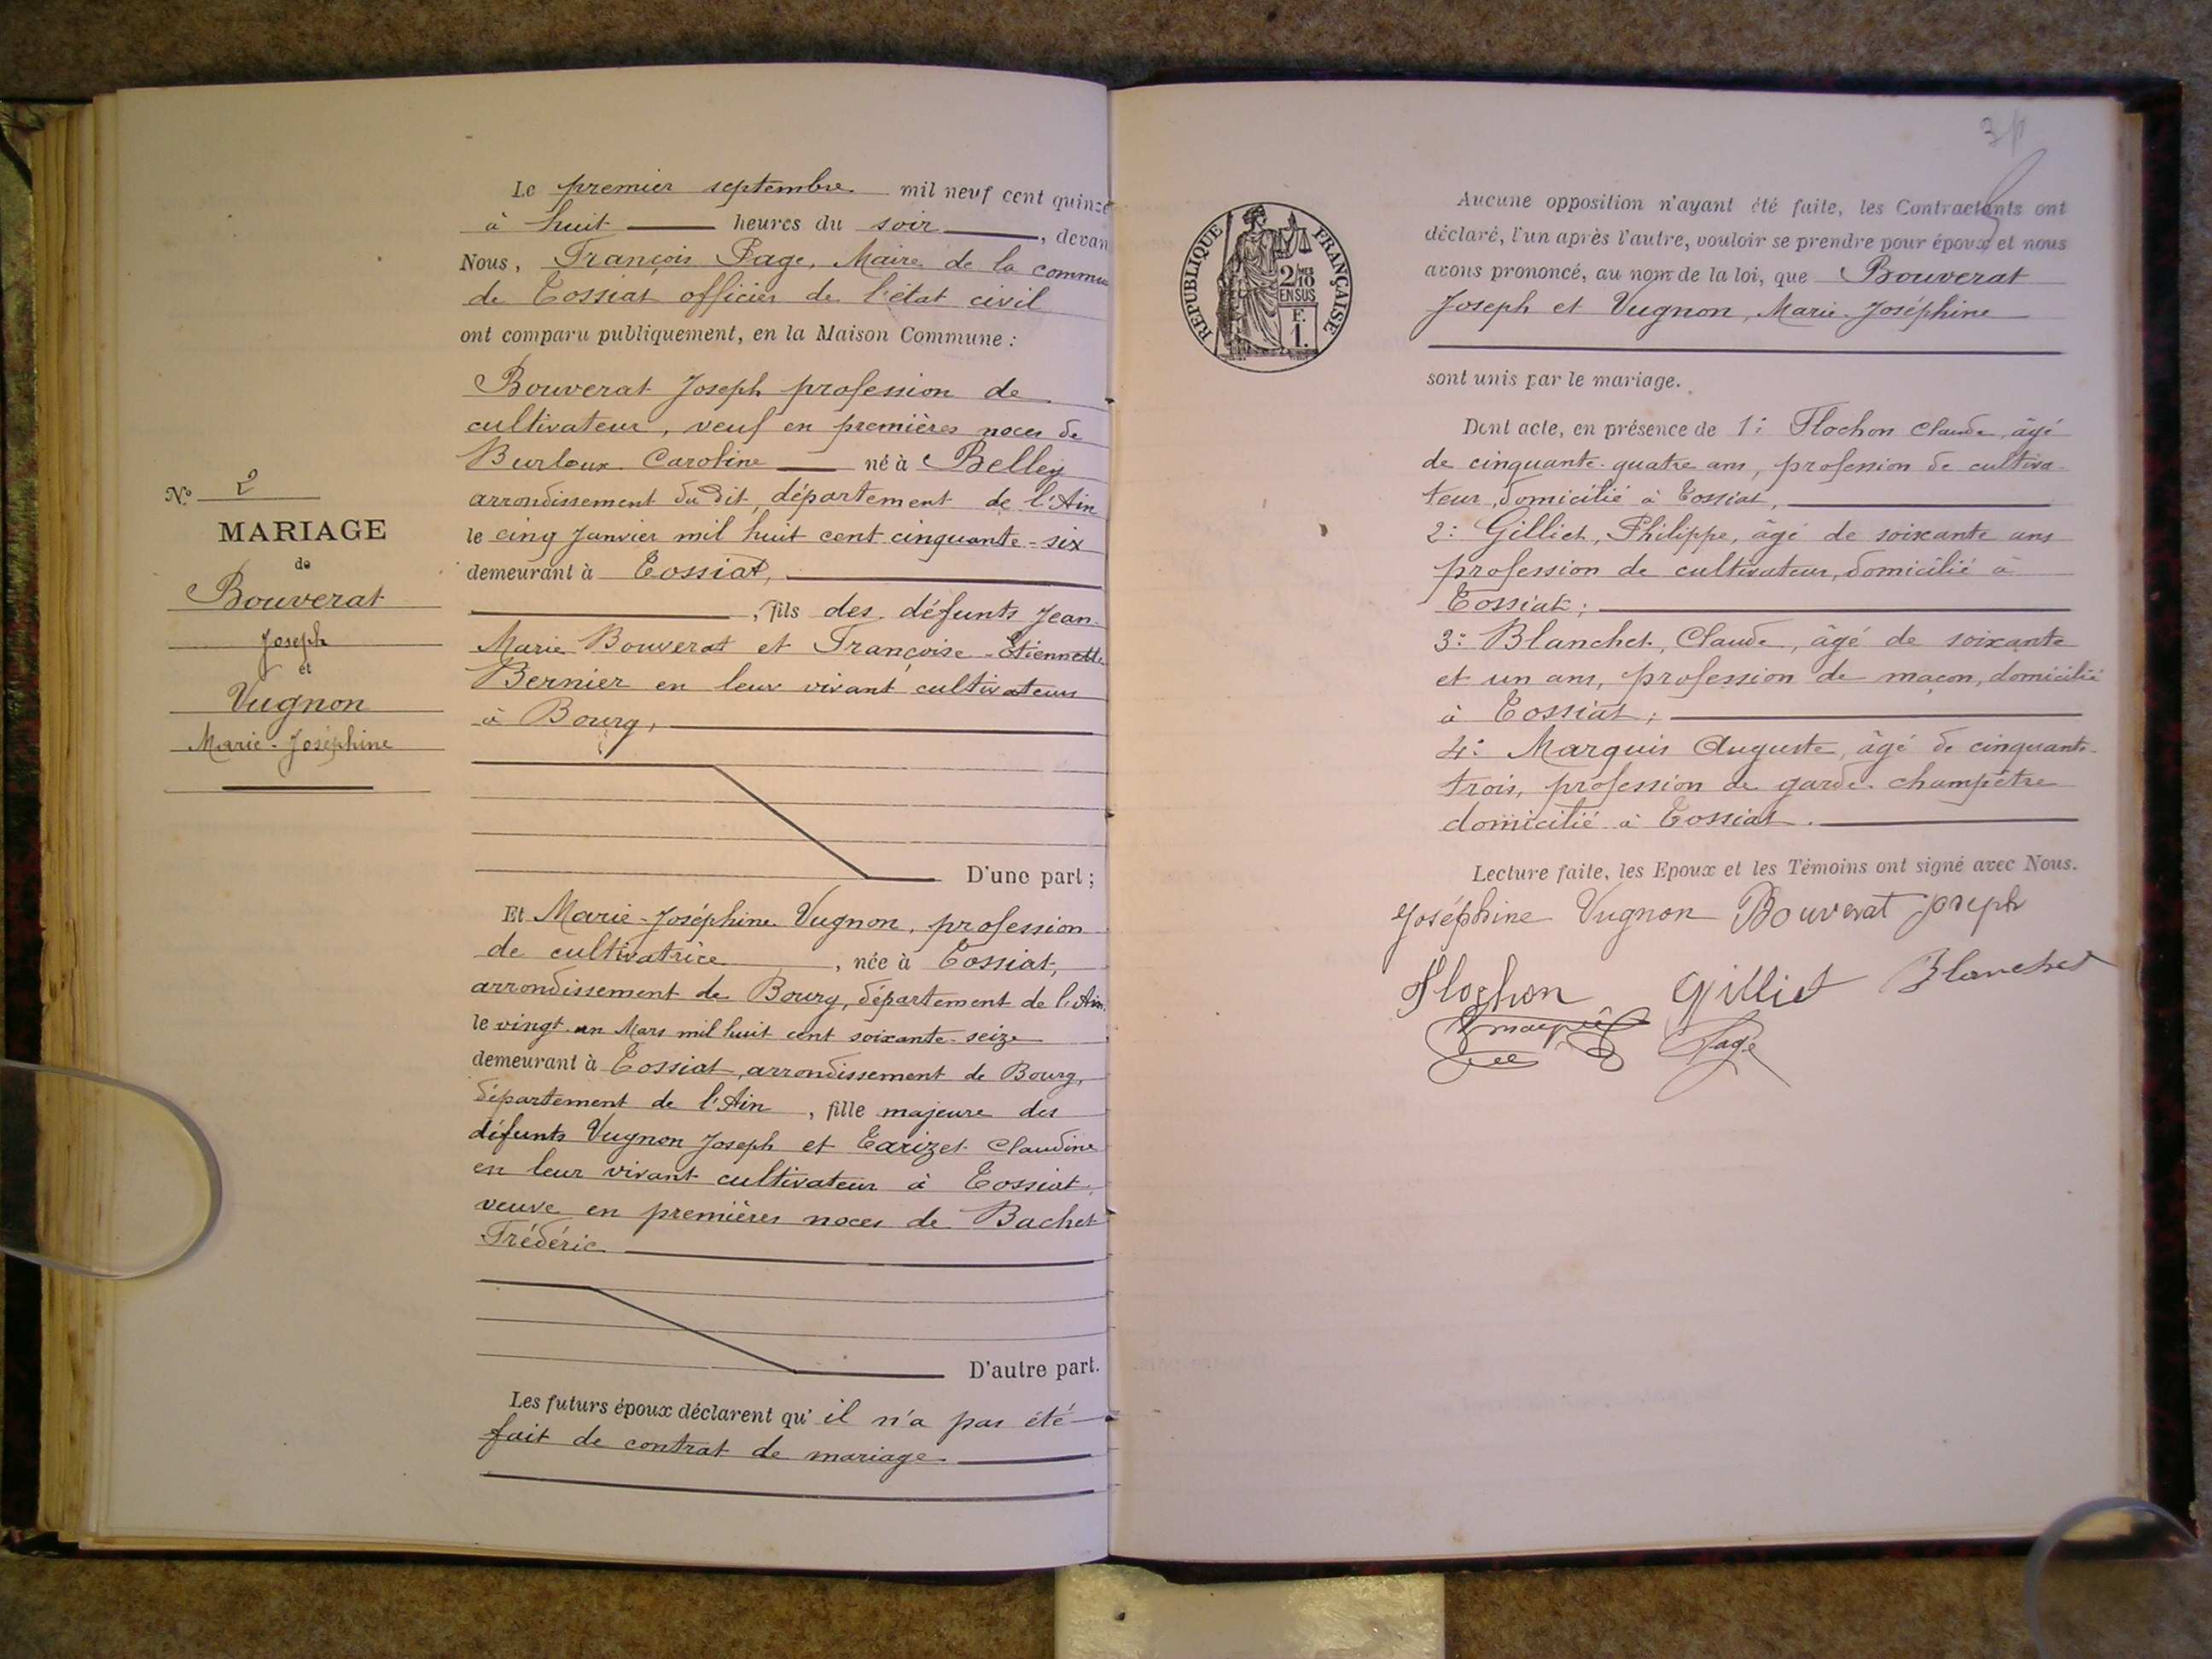 N° 2
MARIAGE
de
Bouverat
Joseph
et
Vugnon
Marie-Joséphine
Le premier septembre mil neuf cent quinze
à huit heures du soir, devan
Nous, François Page, Maire de la commu
de Tossiat officier de l'état civil
ont comparu publiquement, en la Maison Commune :
Bouverat Joseph profession de
cultivateur, veuf en premières noces de
Burloux Caroline né à Belley
arrondissement du dit, département de l'Ain
le cinq Janvier mil huit cent cinquante-six
demeurant à Tossiat,
, fils des défunts Jean-
Marie Bouverat et Françoise-Etiennette
Bernier en leur vivant cultivateurs
à Bourg,
D'une part ;
Et Marie-Joséphine Vugnon, profession
de cultivatrice, née à Tossiat,
arrondissement de Bourg, département de l'Ain
le vingt-un Mars mil huit cent soixante-seize
demeurant à Tossiat, arrondissement de Bourg,
département de l'Ain, fille majeure des
défunts Vugnon Joseph et Tarizet Claudine
en leur vivant cultivateur à Tossiat,
veuve en premières noces de Bachet
Frédéric
D'autre part.
Les futurs époux déclarent qu'il n'a pas été
fait de contrat de mariage.
RÉPUBLIQUE FRANÇAISE
2/10
EN SUS
F.
1.
Aucune opposition n'ayant été faite, les Contractants ont
déclaré, l'un après l'autre, vouloir se prendre pour époux et nous
avons prononcé, au nom de la loi, que Bouverat
Joseph et Vugnon, Marie-Joséphine
sont unis par le mariage.
Dont acte, en présence de 1° Flochon Claude, âgé
de cinquante-quatre ans, profession de cultiva-
teur, domicilié à Tossiat,
2° Gilliet, Philippe, âgé de soixante ans
profession de cultivateur, domicilié à
Tossiat ;
3° Blanchet, Claude, âgé de soixante
et un ans, profession de maçon, domicilié
à Tossiat ;
4° Marquis Auguste, âgé de cinquante-
trois, profession de garde-champêtre
domicilié à Tossiat.
Lecture faite, les Epoux et les Témoins ont signé avec Nous.
Joséphine Vugnon Bouverat Joseph
Flochon Gilliet Blanchet
Marquis Page